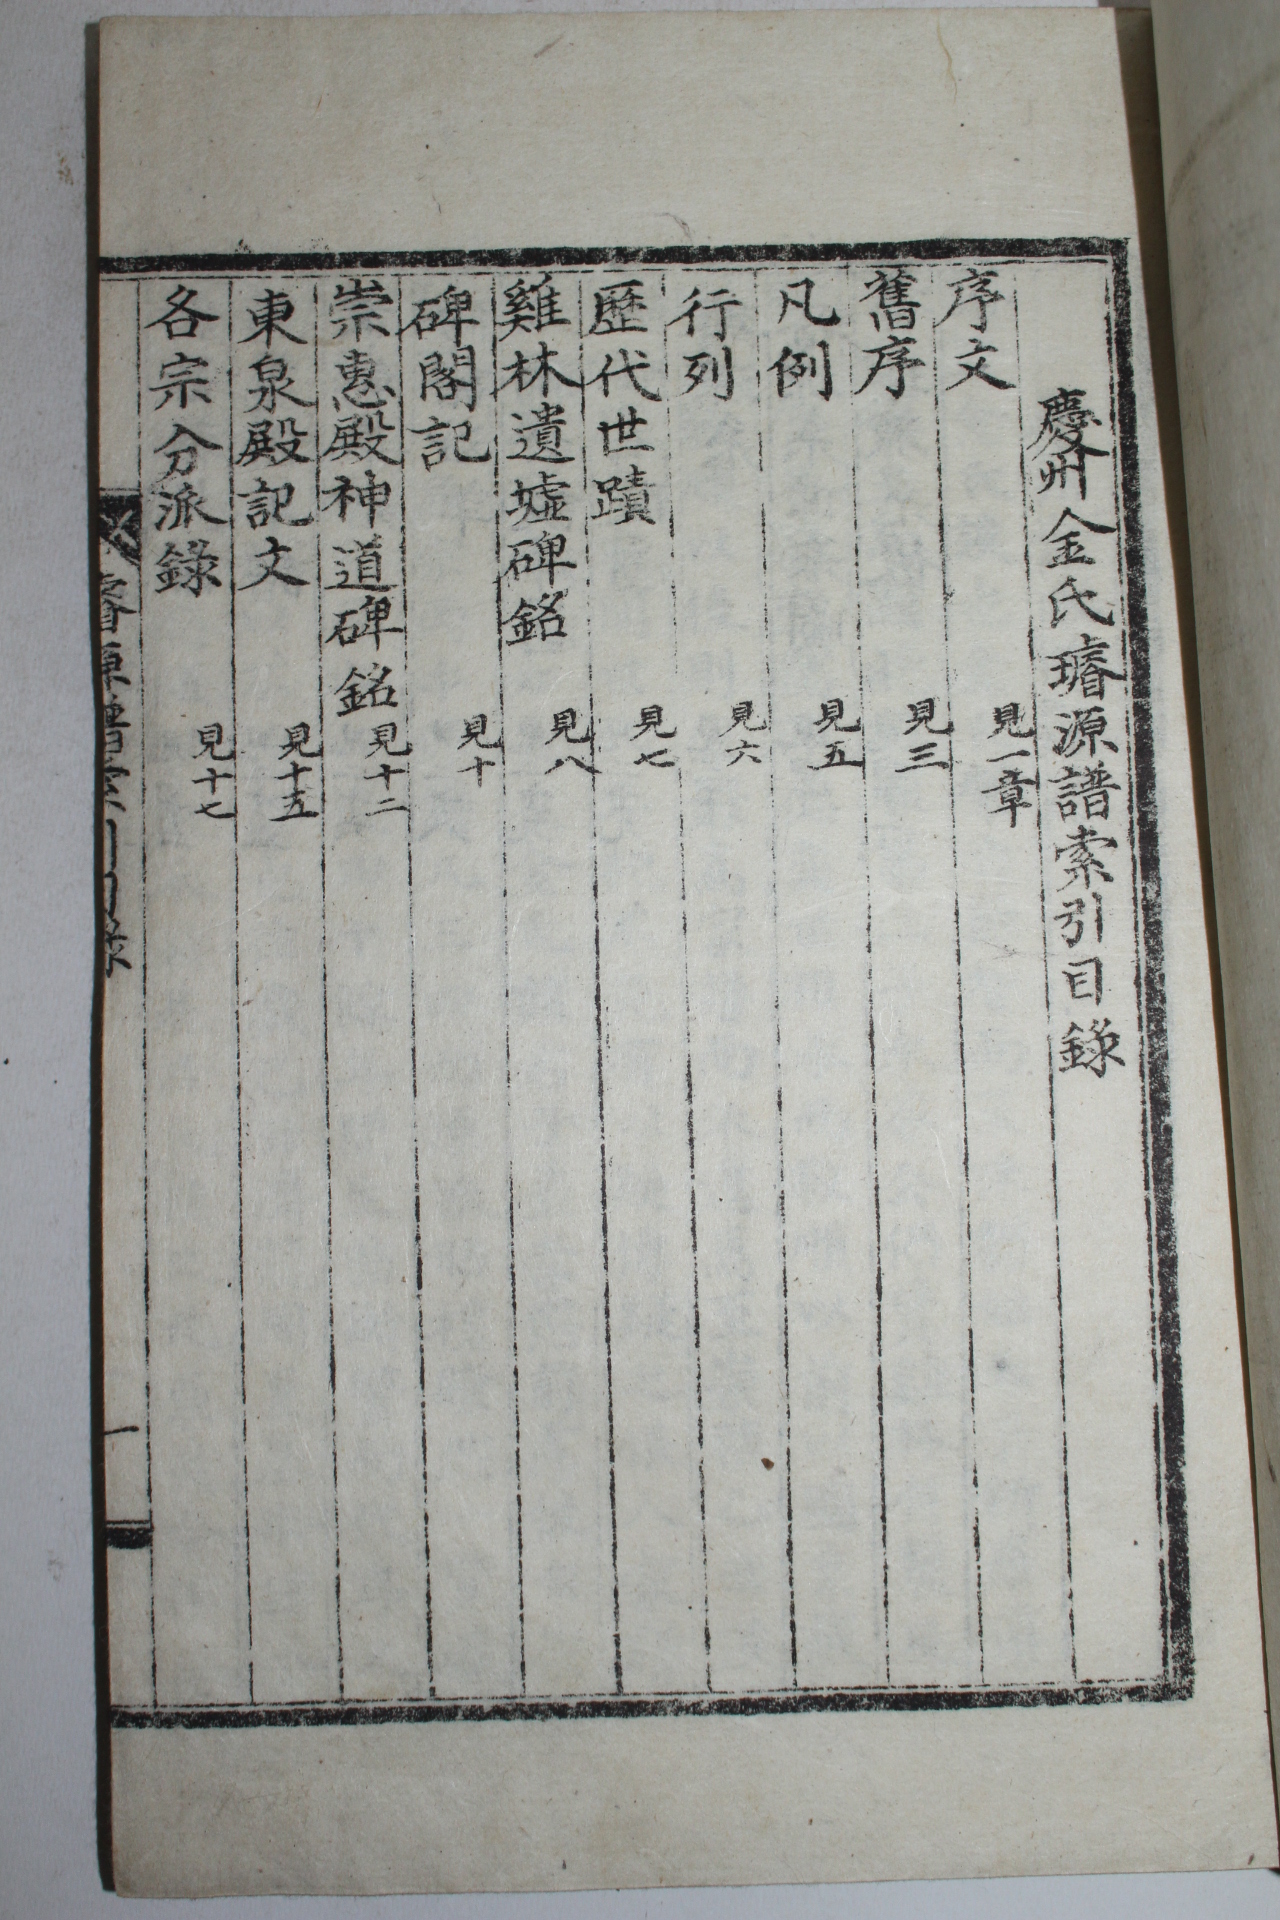 慶州金氏璿源譜索引目錄
序文 見一章
舊序 見三
凡例 見五
行列 見六
歷代世蹟 見七
雞林遺墟碑銘 見八
碑閣記 見十
崇惠殿神道碑銘 見十二
東泉殿記文 見十五
各宗分派錄 見十七
一